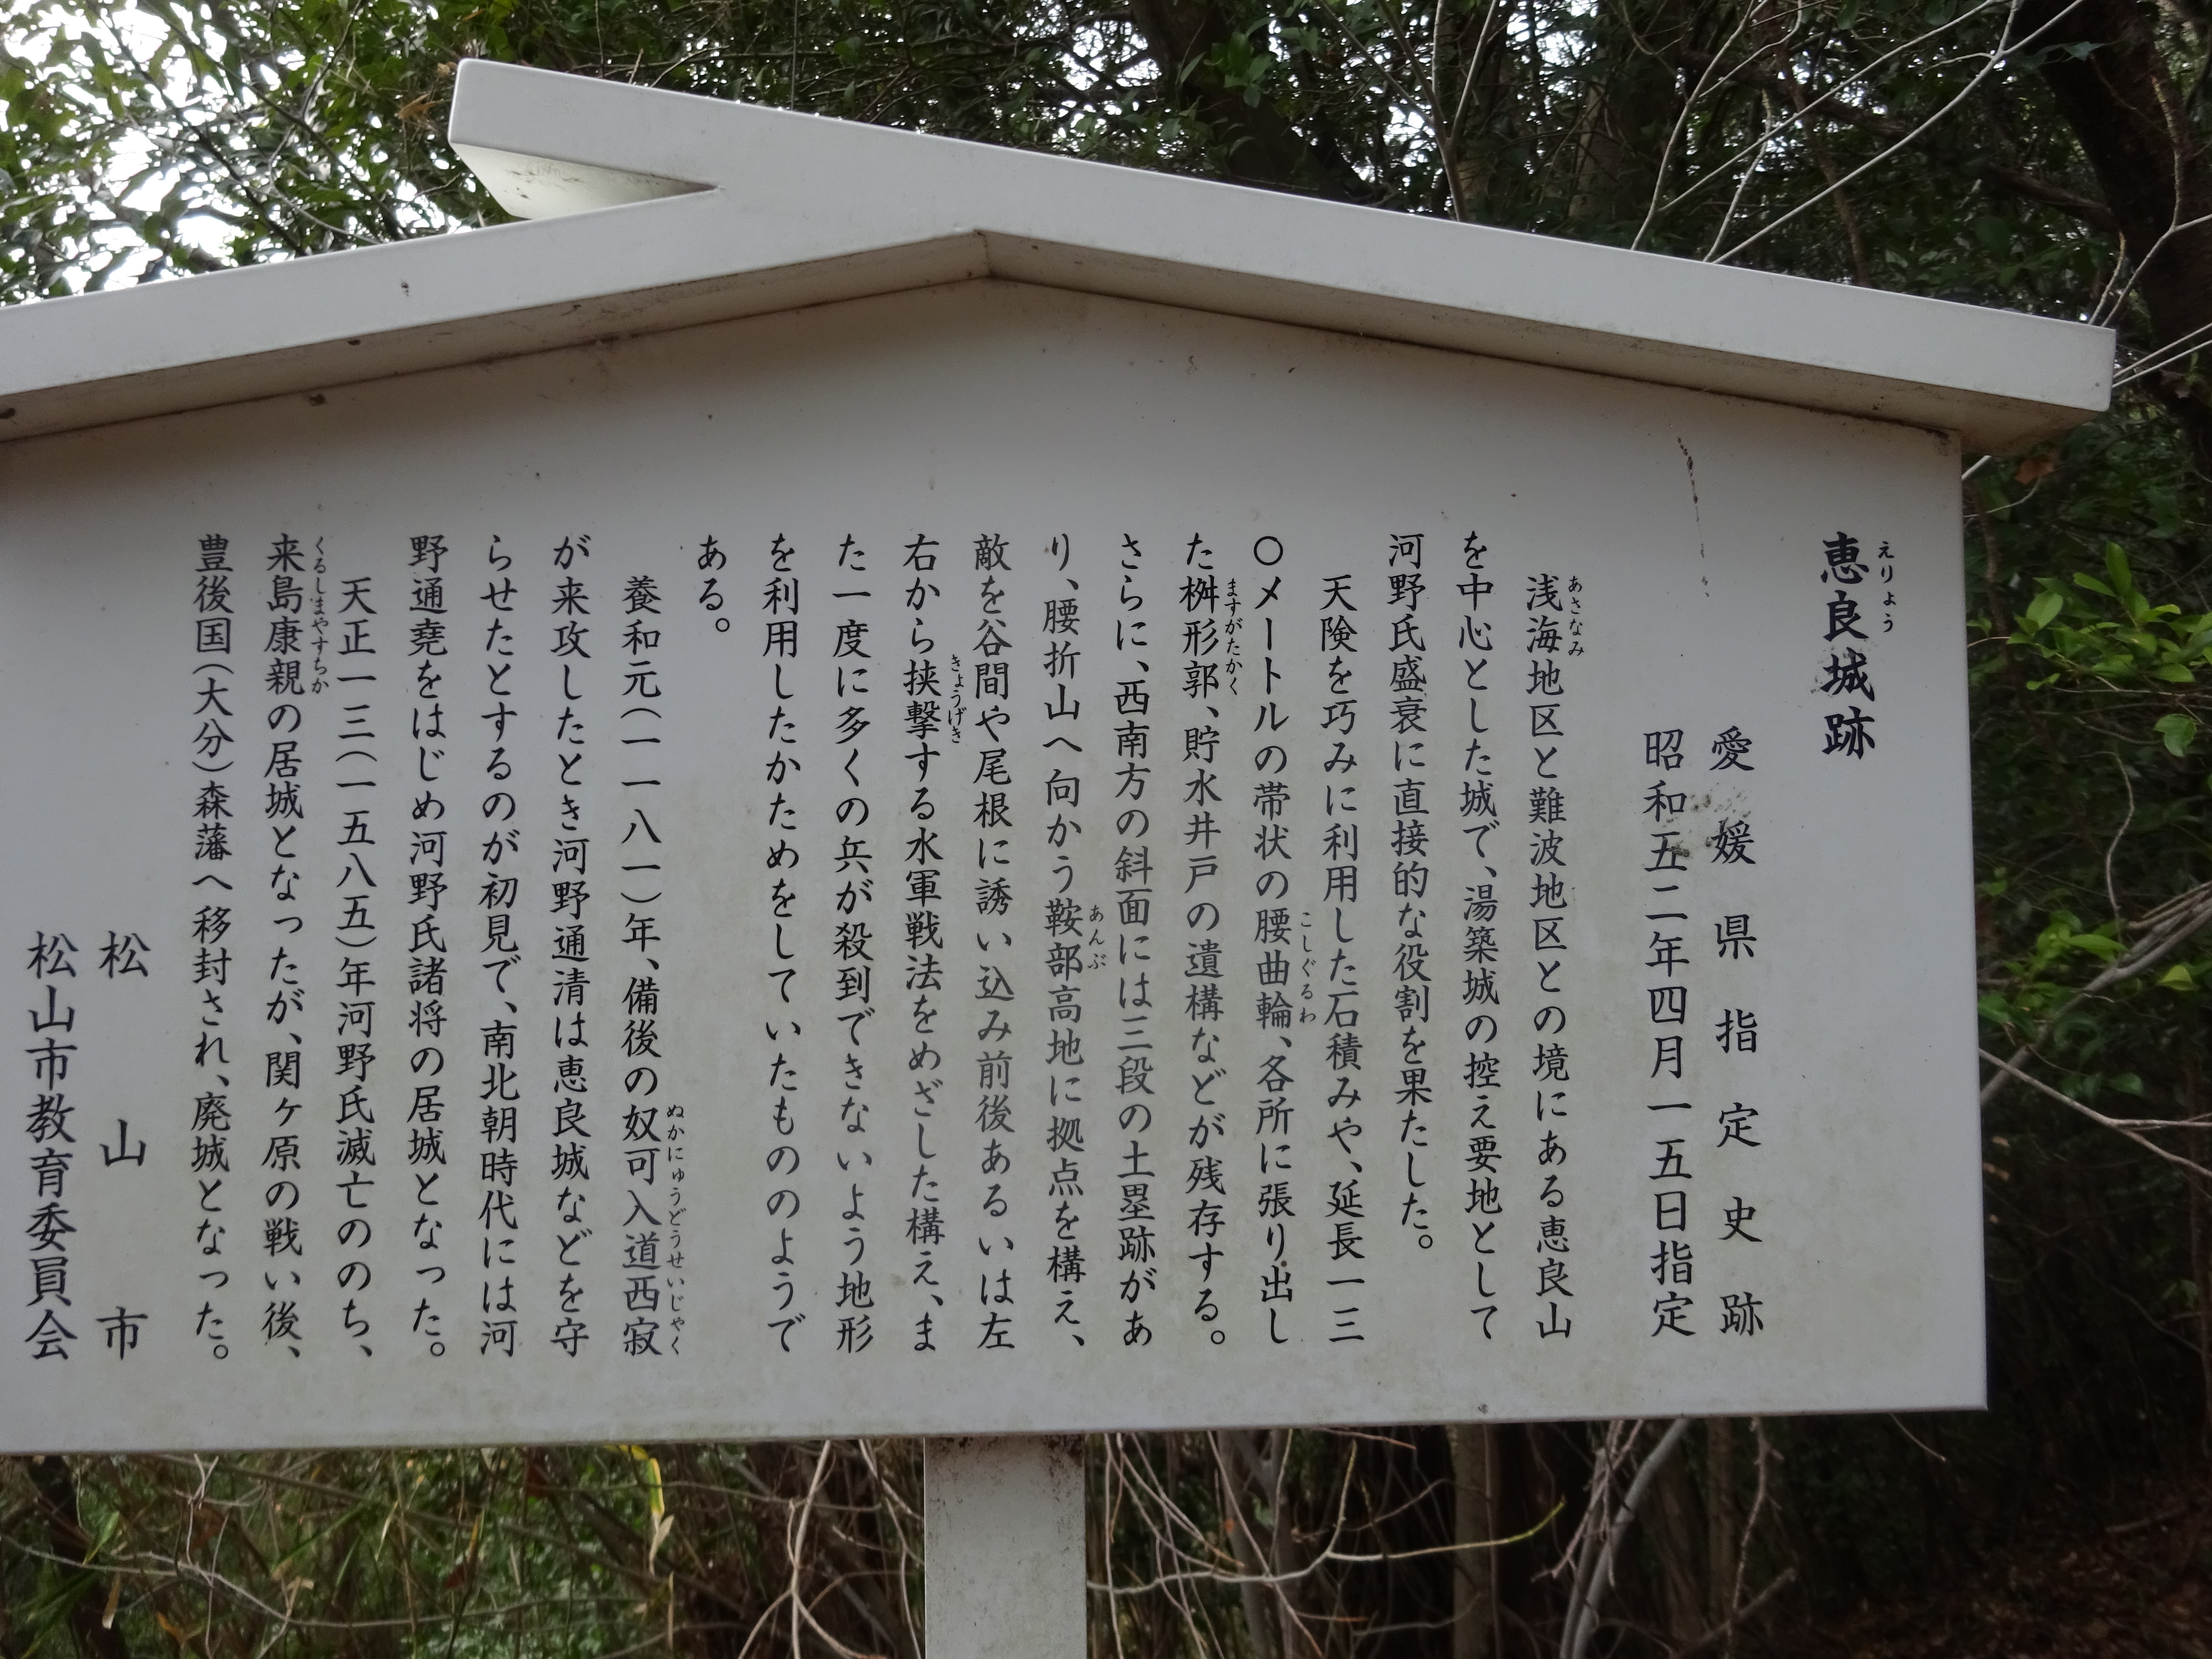 恵良城跡
えりょう
愛媛県指定史跡
昭和五二年四月一五日指定
浅海地区と難波地区との境にある恵良山
あさなみ
を中心とした城で、湯築城の控え要地として
河野氏盛衰に直接的な役割を果たした。
天険を巧みに利用した石積みや、延長一三
〇メートルの帯状の腰曲輪、各所に張り出し
こしぐるわ
た桝形郭、貯水井戸の遺構などが残存する。
ますがたかく
さらに、西南方の斜面には三段の土塁跡があ
り、腰折山へ向かう鞍部高地に拠点を構え、
あんぶ
敵を谷間や尾根に誘い込み前後あるいは左
右から挟撃する水軍戦法をめざした構え、ま
きょうげき
た一度に多くの兵が殺到できないよう地形
を利用したかためをしていたもののようで
ある。
養和元(一一八一)年、備後の奴可入道西寂
ぬかにゅうどうせいじゃく
が来攻したとき河野通清は恵良城などを守
らせたとするのが初見で、南北朝時代には河
野通堯をはじめ河野氏諸将の居城となった。
天正一三(一五八五)年河野氏滅亡ののち、
来島康親の居城となったが、関ヶ原の戦い後、
くるしまやすちか
豊後国(大分)森藩へ移封され、廃城となった。
松山市
松山市教育委員会